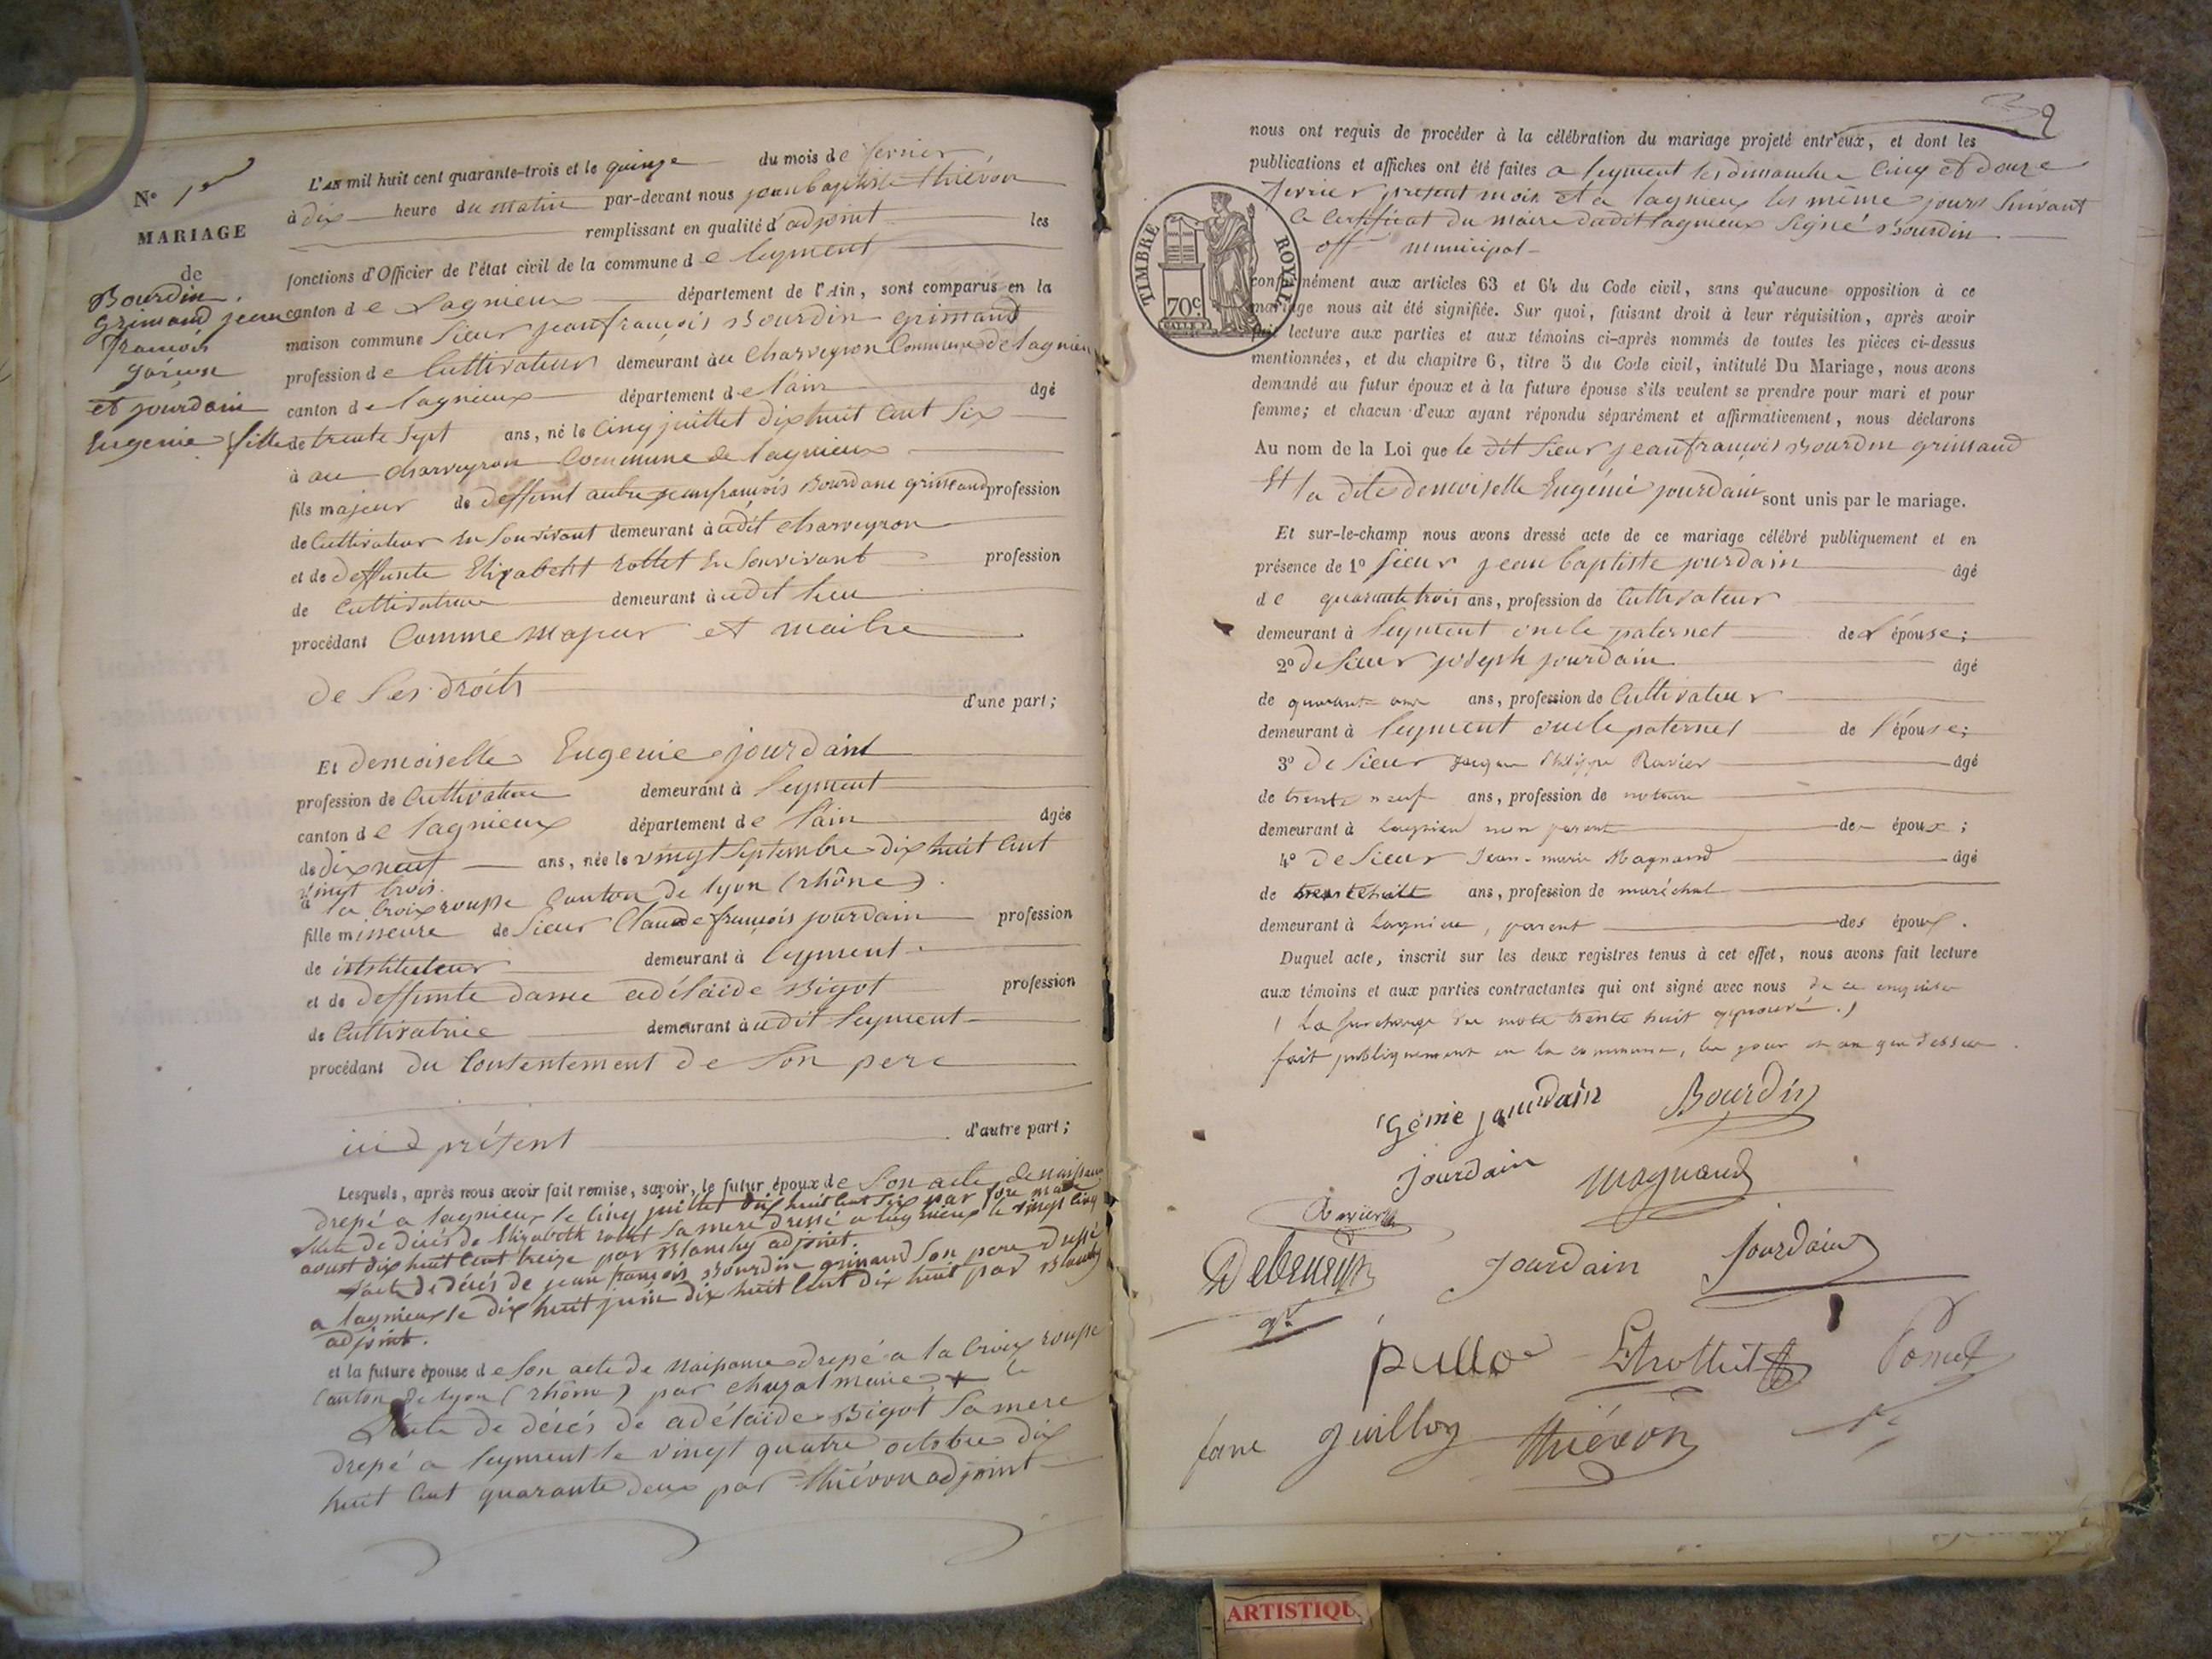 N° 1er
MARIAGE
de
Bourdin
Grimaud jean
françois
garçon
et jourdain
Eugenie fille
L'AN mil huit cent quarante-trois et le quinze du mois de fevrier
à dix heure du matin par-devant nous jean baptiste thiévon
remplissant en qualité d'adjoint les
fonctions d'Officier de l'état civil de la commune de leyment
canton de Lagnieux département de l'Ain, sont comparus en la
maison commune Sieur jean françois Bourdin grimaud
profession de Cultivateur demeurant à au Charveyron Commune de lagnieu
canton de lagnieux département de l'ain âgé
de trente sept ans, né le cinq juillet dix huit cent six
à au charveyron Commune de lagnieux
fils majeur de deffunt autre jean françois Bourdane grimaud profession
de Cultivateur en Son vivant demeurant à udit charveyron
et de deffunte Elizabeht rottet en Son vivant profession
de Cultivatrice demeurant à udit lieu
procédant Comme majeur et maitre
de Ses droits d'une part;
Et demoiselle Eugenie jourdaint
profession de Cultivatrice demeurant à leyment
canton de lagnieux département de l'ain âgée
de dix neuf ans, née le vingt Septembre dix huit cent
vingt trois
à la Croix rousse Canton de lyon (rhône).
fille mineure de Sieur Claude françois jourdain profession
de iststituteur demeurant à leyment
et de deffunte dame adélaide Bigot profession
de Cultivatrice demeurant à udit leyment
procédant du Contentement de Son pere
ici présent d'autre part;
Lesquels, après nous avoir fait remise, savoir, le futur époux de Son acte de naissance
dressé a lagnieux le cinq juillet dix huit cent six par fore maire
acte de décés de Elizabeth rottet Sa mere dressé a lagnieux le vingt cinq
aoust dix huit cent treize par Blanchy adjoint.
acte de décés de jean françois Bourdin grimaud Son pere dressé
a lagnieux le dix huit juin dix huit cent dix huit par Blanchy
adjoint.
et la future épouse de Son acte de naissance dressé a la Croix rousse
Canton de lyon (rhône) par maire + le
acte de décés de adélaïde Bigot Sa mere
dressé a leyment le vingt quatre octobre dix
huit cent quarante deux par thiévon adjoint
nous ont requis de procéder à la célébration du mariage projeté entr'eux, et dont les
publications et affiches ont été faites a leyment les dimanche cinq et douze
fevrier présent mois et a lagnieux les même jours Suivant
le Certificat du maire dudit lagnieux Signé Bourdin
off municipal
TIMBRE ROYAL
70c
conformément aux articles 63 et 64 du Code civil, sans qu'aucune opposition à ce
mariage nous ait été signifiée. Sur quoi, faisant droit à leur réquisition, après avoir
fait lecture aux parties et aux témoins ci-après nommés de toutes les pièces ci-dessus
mentionnées, et du chapitre 6, titre 5 du Code civil, intitulé Du Mariage, nous avons
demandé au futur époux et à la future épouse s'ils veulent se prendre pour mari et pour
femme; et chacun d'eux ayant répondu séparément et affirmativement, nous déclarons
Au nom de la Loi que le dit Sieur jean françois Bourdin grimaud
Et la dite demoiselle Eugénie jourdain sont unis par le mariage.
Et sur-le-champ nous avons dressé acte de ce mariage célébré publiquement et en
présence de 1° Sieur jean baptiste jourdain âgé
de quarante trois ans, profession de Cultivateur
demeurant à leyment oncle paternel de L'épouse;
2° de Sieur joseph jourdain âgé
de quarante ans, profession de Cultivateur
demeurant à leyment oncle paternel de l'épouse;
3° de Sieur Jacques Philippe Ravier âgé
de trente neuf ans, profession de notaire
demeurant à Lagnieu non parent de époux;
4° de Sieur Jean-marie Magnand âgé
de trente huit ans, profession de maréchal
demeurant à Lagnieu, parent des époux.
Duquel acte, inscrit sur les deux registres tenus à cet effet, nous avons fait lecture
aux témoins et aux parties contractantes qui ont signé avec nous de ce enquis
(La surcharge des mots trente huit approuvé.)
fait publiquement en la commune, les jour et an que dessus.
génie jourdain Bourdin
Jourdain Magnand
Ravier
Jourdain Jourdain
pullo
fave guilloy thiévon
ARTISTIQU